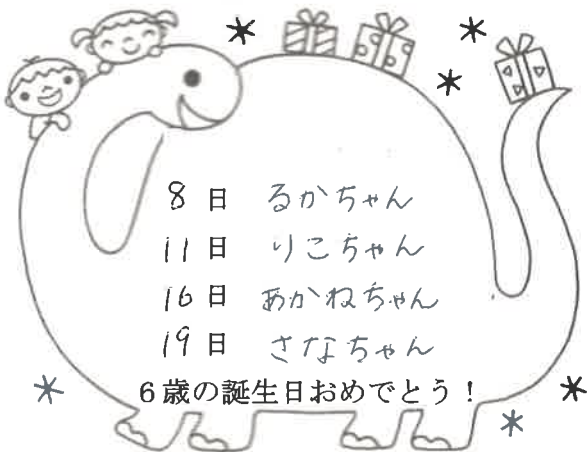 8日 るかちゃん
11日 りこちゃん
16日 あかねちゃん
19日 さなちゃん
6歳の誕生日おめでとう!